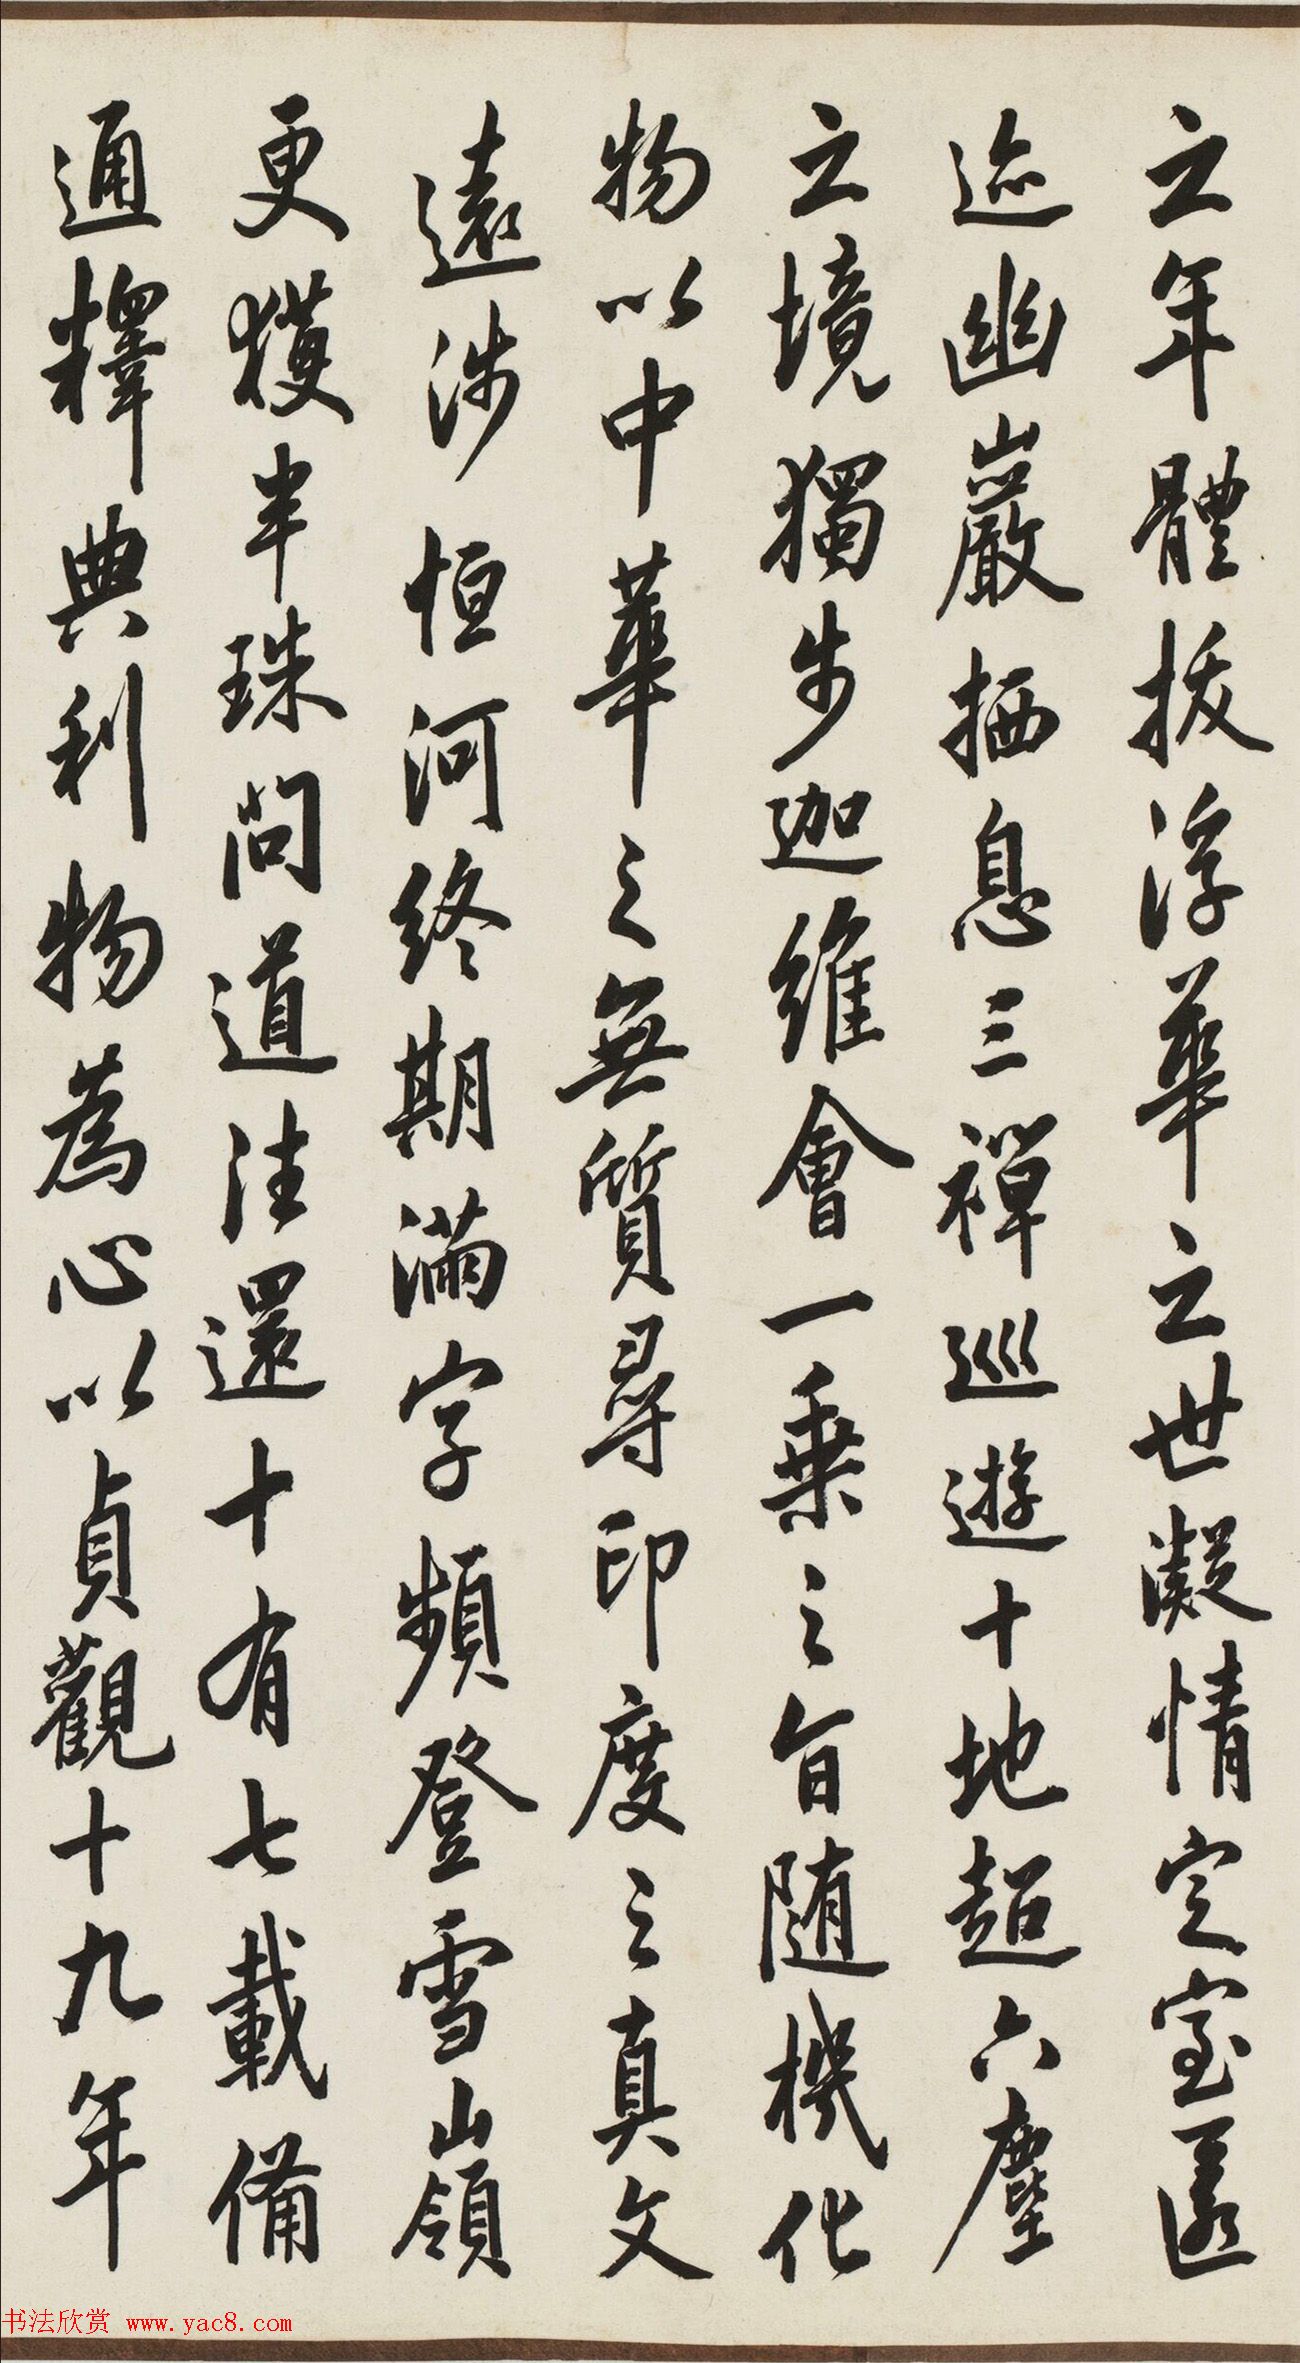 之年體拔浮華之世凝情定室匿
迹幽巖栖息三禪巡遊十地超六塵
之境獨步迦維會一乗之旨随機化
物以中華之無質尋印度之真文
遠涉恒河終期滿字頻登雪嶺
更獲半珠問道法還十有七載備
通釋典利物為心以貞觀十九年
书法欣赏 www.yac8.com